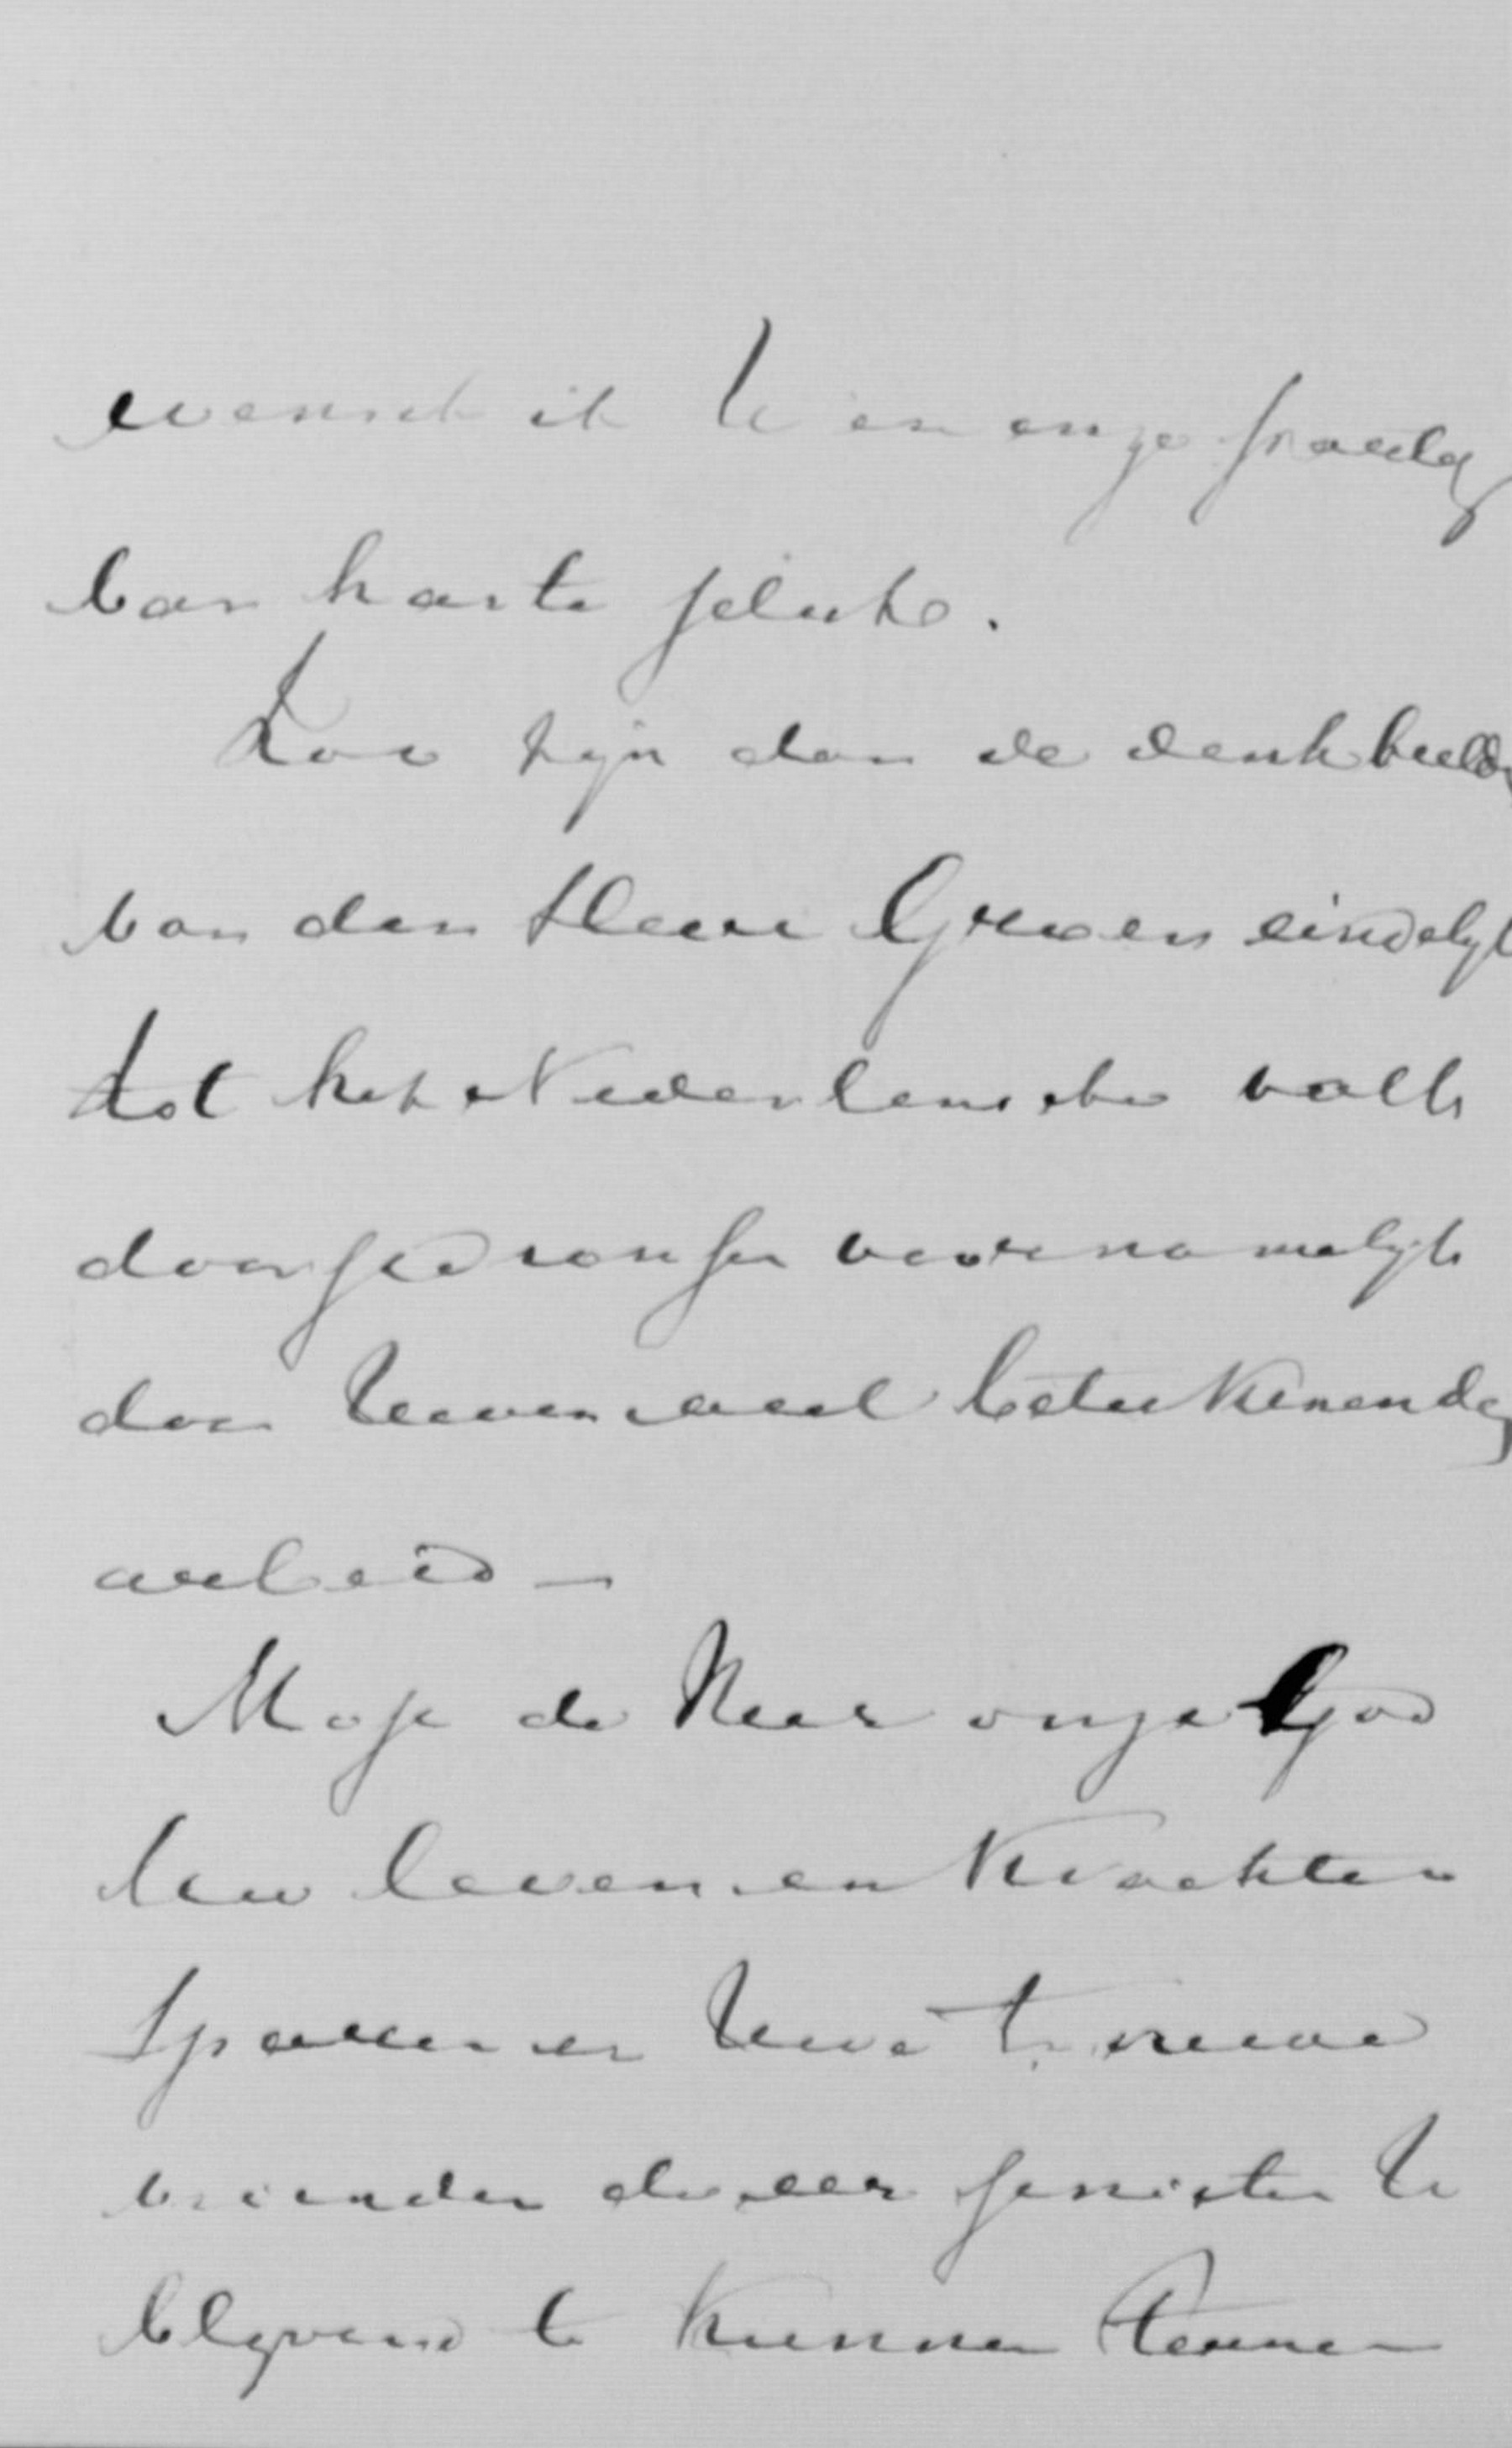 wensch ik U en onze partij
van harte geluk.
Zoo zijn dan de denkbeelden
van den Heer Groen eindelijk
tot het Nederlandsche volk
doorgedrongen voornamelijk
door Uwen veel beteekenenden
arbeid —
Moge de Heer onze God
Uw leven en krachten
sparen en Uwe trouwe
vrienden de eer genieten U
blijvend te kunnen steunen